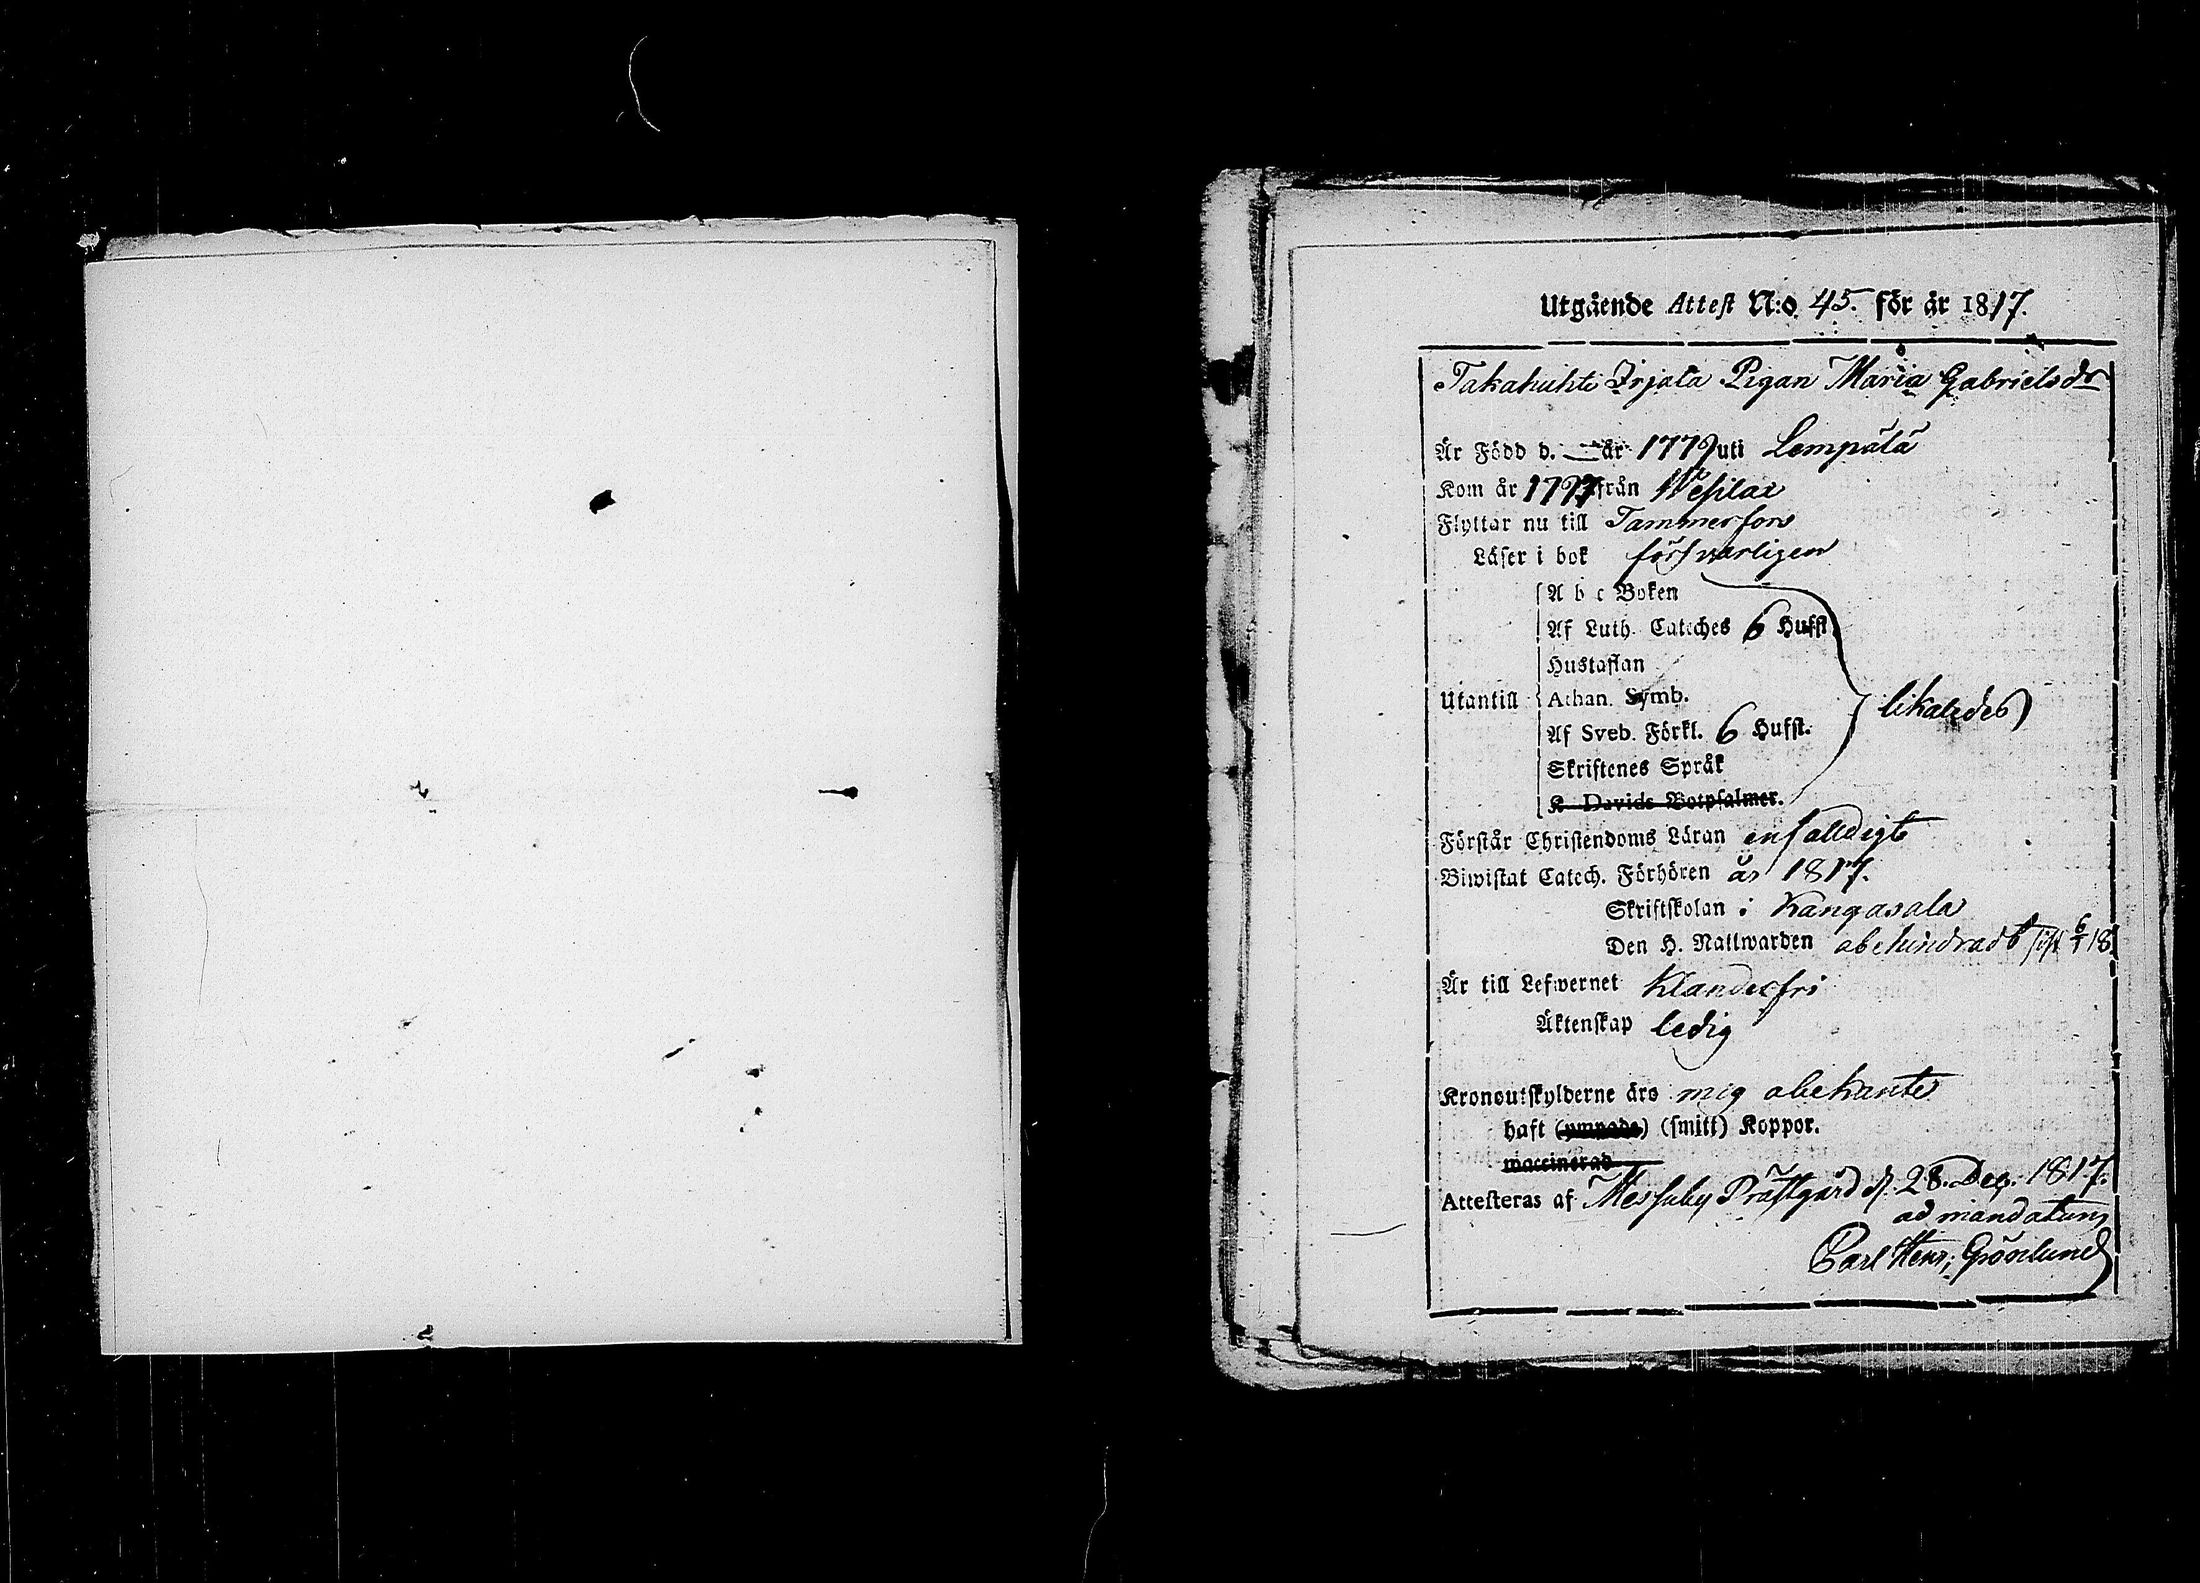 Utgående Attest N:o 45. för år 1817.
Takahuhti Irjala Pigan Maria Gabrielsdr
Är Född d. — år 1779 uti Lempälä
Kom år 1797 från Wesilax
Flyttar nu till Tammerfors
Läser i bok försvarligen
A b c Boken
Af Luth. Cateches 6 Hufst.
Hustaflan
Utantill Athan. Symb. likaledes
Af Sveb. Förkl. 6 Hufst.
Skriftenes Språk
K Davids Botpsalmer.
Förstår Christendoms Läran enfalldigt
Biwistat Catech. Förhören år 1817.
Skriftskolan i Kangasala
Den H. Nattwarden obehindradt sist 6/1 18
Är till Lefwernet Klanderfri
Äktenskap ledig
Kronoutskylderne äro mig obekante
haft (ympade) (smitt) Koppor.
waccinerad
Attesteras af Messuby Prästgård d. 28. Dec. 1817.
ad mandatum
Carl Henr. Grönlund